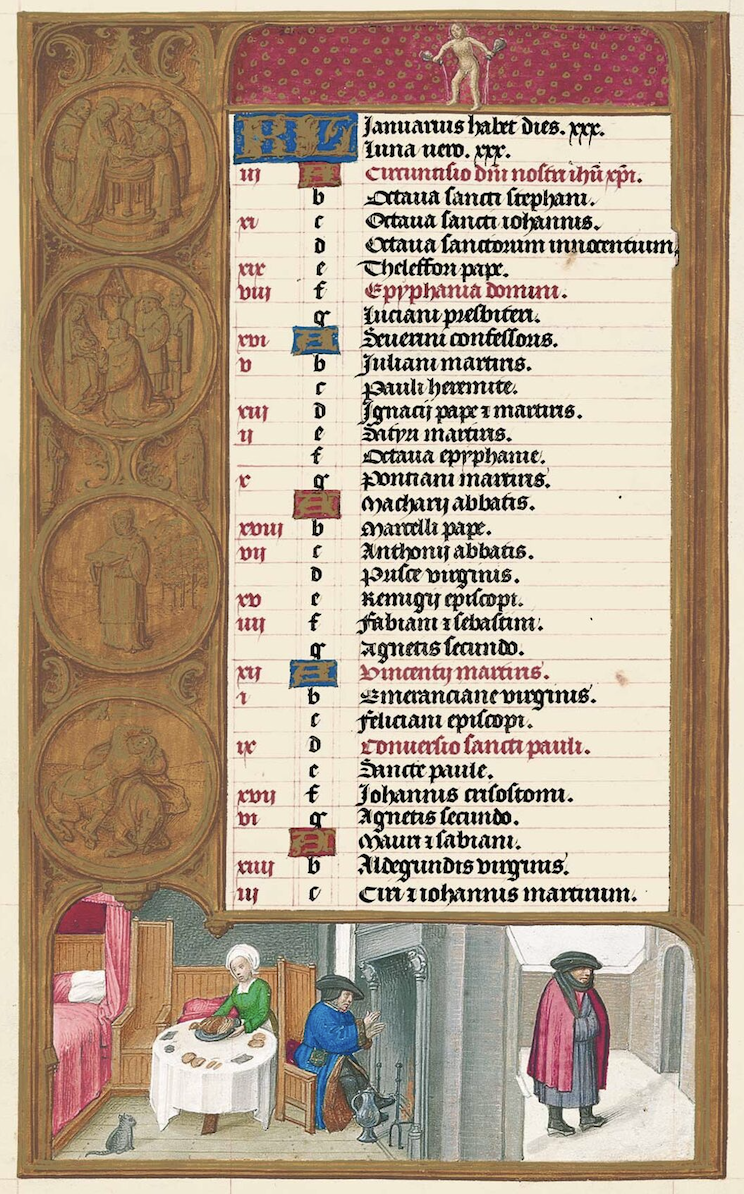 KL Januarius habet dies. xxx.
Luna uero. xxx.
iii A Circuncisio dnī nostri ihū xpī.
b Octaua sancti stephani.
xi c Octaua sancti iohannis.
d Octaua sanctorum innocentium.
xix e Theleffori pape.
viii f Epyphania domini.
g Luciani presbiteri.
xvi A Seuerini confessoris.
v b Juliani martiris.
c Pauli heremite.
xiii d Ignacij pape ⁊ martiris.
ii e Satyri martiris.
f Octaua epyphanie.
x g Pontiani martiris.
A Macharij abbatis.
xviii b Marcelli pape.
vii c Anthonij abbatis.
d Prisce virginis.
xv e Remigij episcopi.
iiii f Fabiani ⁊ sebastini.
g Agnetis secundo.
xii A Vincentij martiris.
i b Emeranciane virginis.
c Feliciani episcopi.
ix d Conuersio sancti pauli.
e Sancte paule.
xvii f Johannis crisostomi.
vi g Agnetis secundo.
A Mauri ⁊ sabiani.
xiiii b Aldegundis virginis.
iii c Ciri ⁊ iohannis martirum.